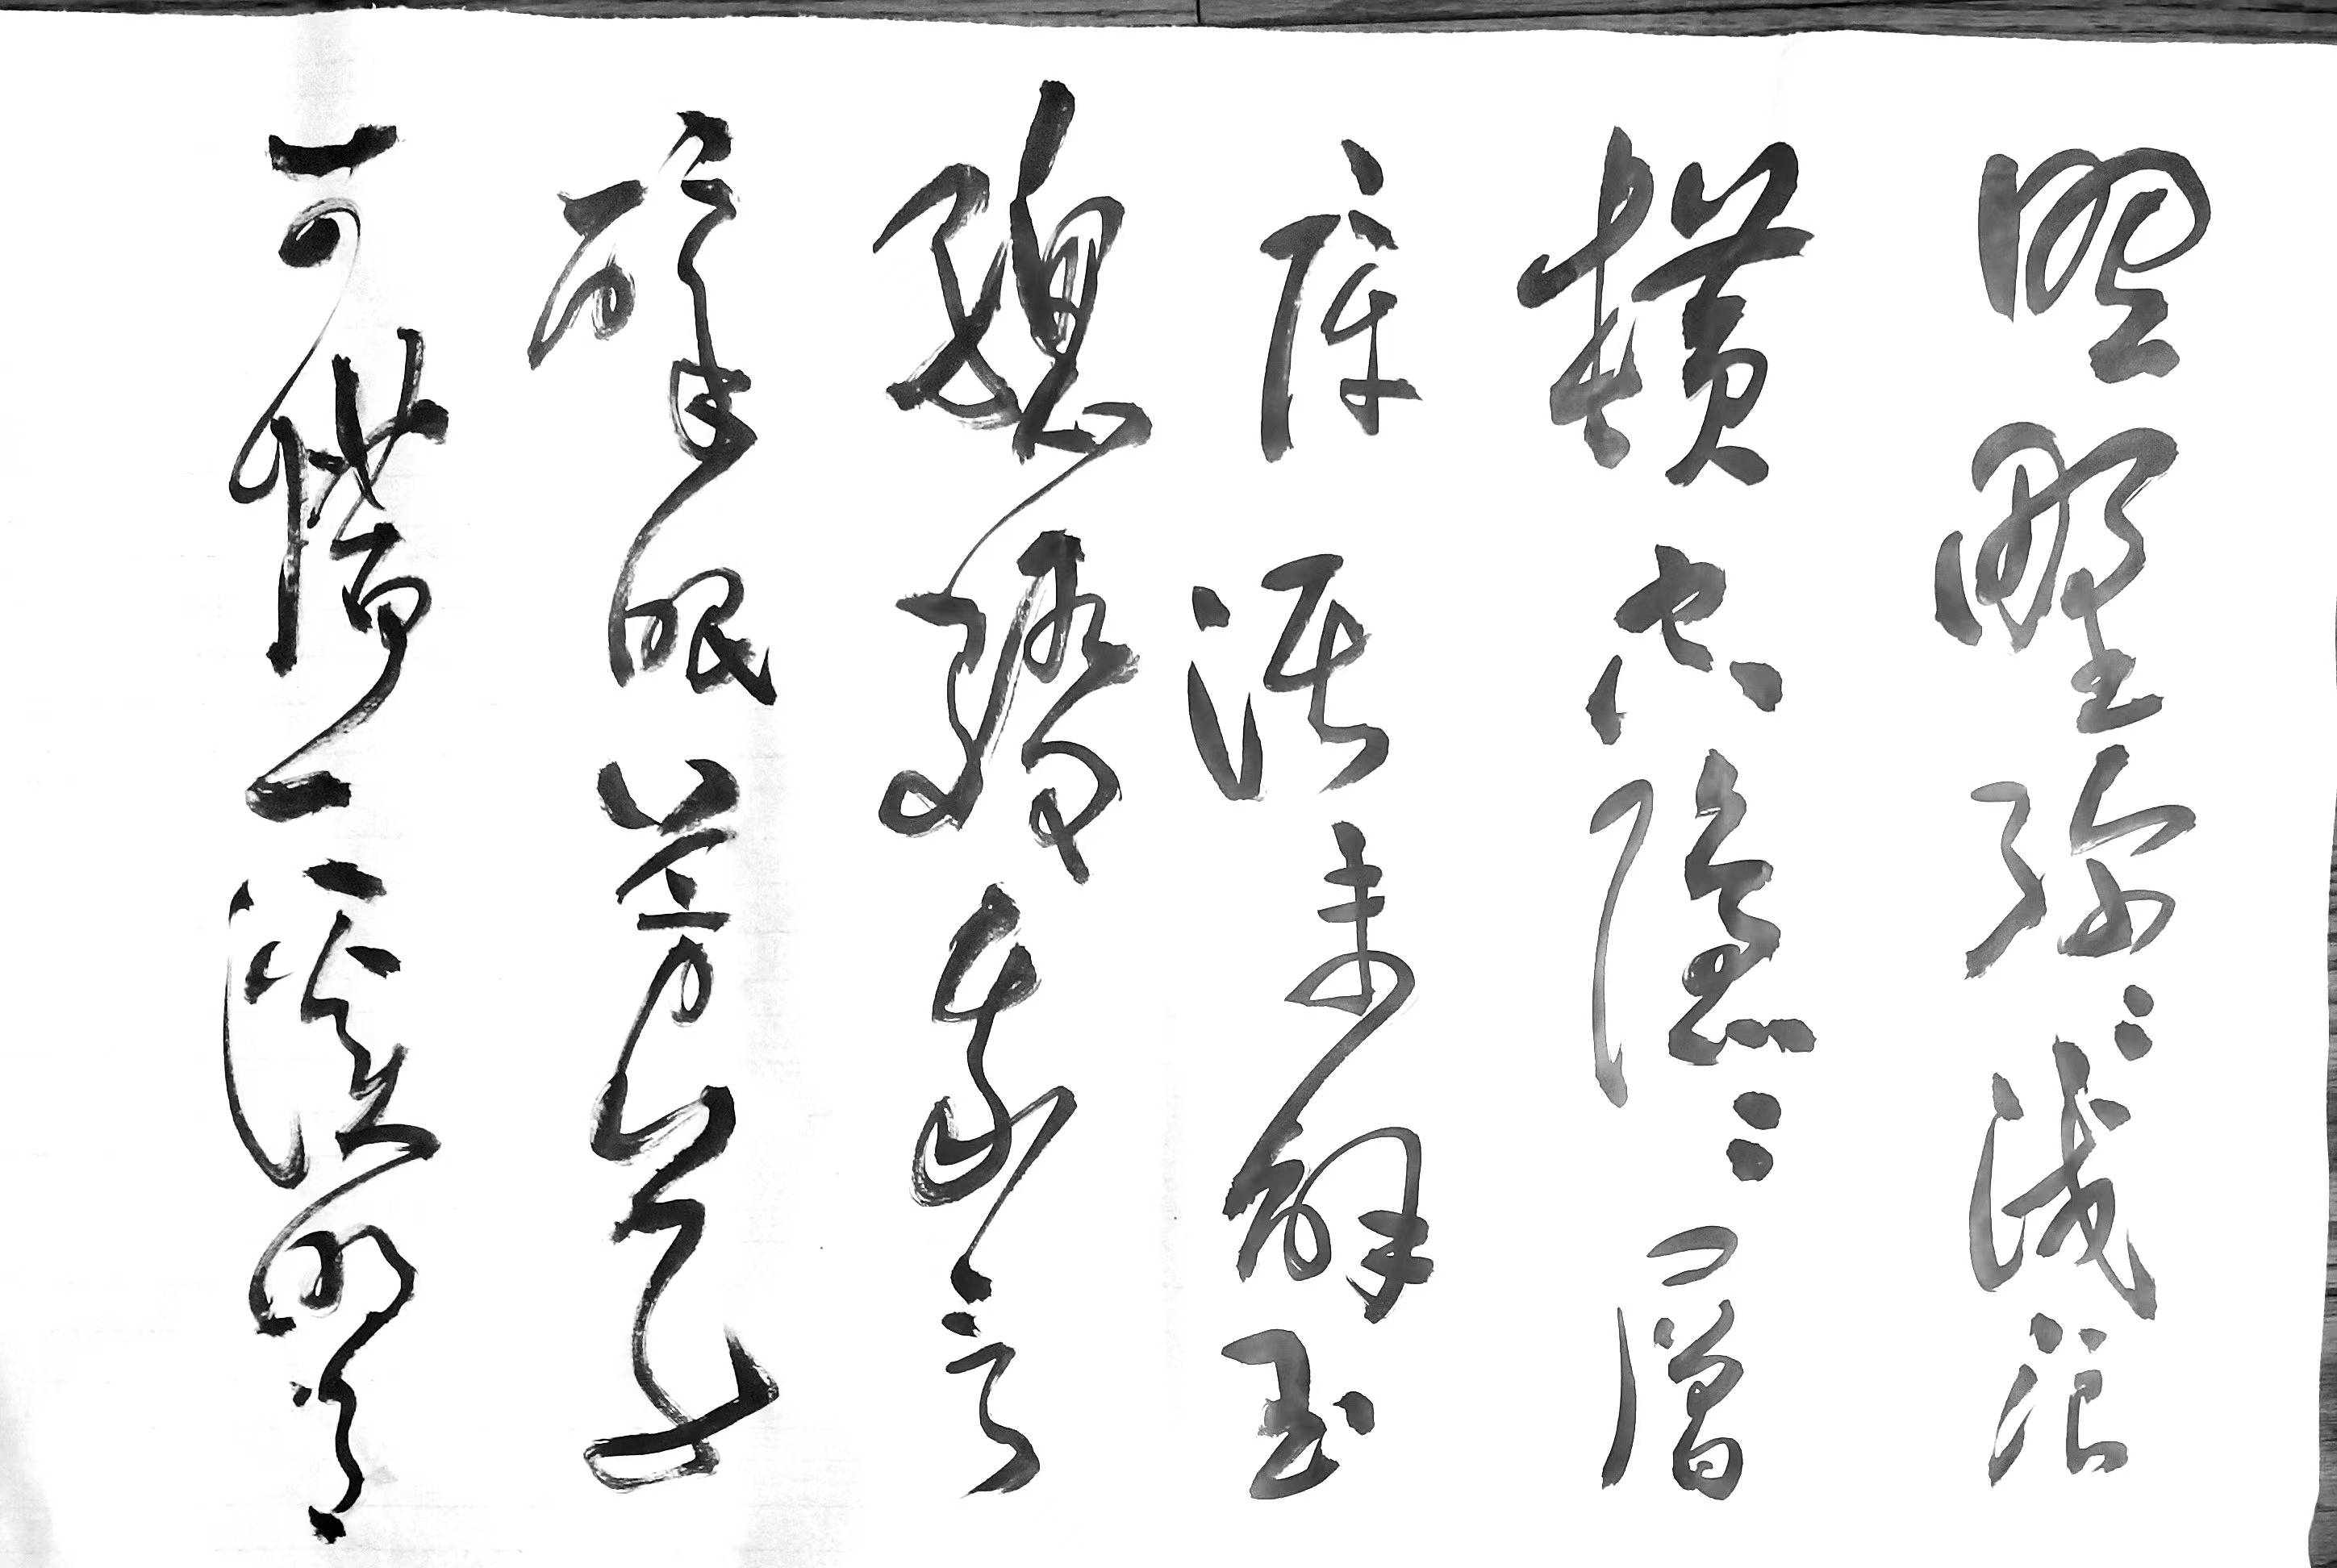 照野弥〻浅浪
横空隱〻層
障泥未解玉
驄驕我欲
醉眠芳草
可惜一溪明月